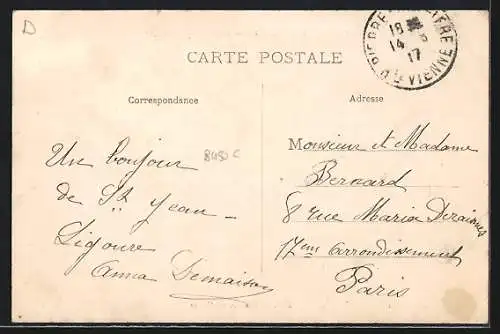 D
PIERRE-BUFFIÈRE
18
14 - 3
17
Hte VIENNE
CARTE POSTALE
Correspondance
Adresse
8450 C
Un bonjour
de St Jean -
Ligoure
Anna Demaison
Monsieur et Madame
Bernard
8 rue Maria Deraismes
17em Arrondissement
Paris